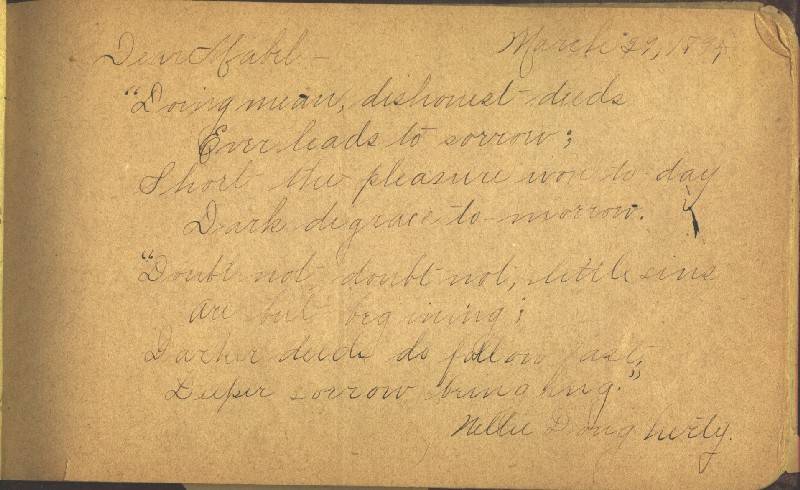 Dear Mabel – March 29, 1894.
"Doing mean, dishonest deeds
Ever leads to sorrow;
Short the pleasure won to day
Dark degrace to-morrow.
"Doubt not, doubt not, little sins
are but begining;
Darker deeds do follow fast,
Deeper sorrow bringing."
Nellie Dougherty.